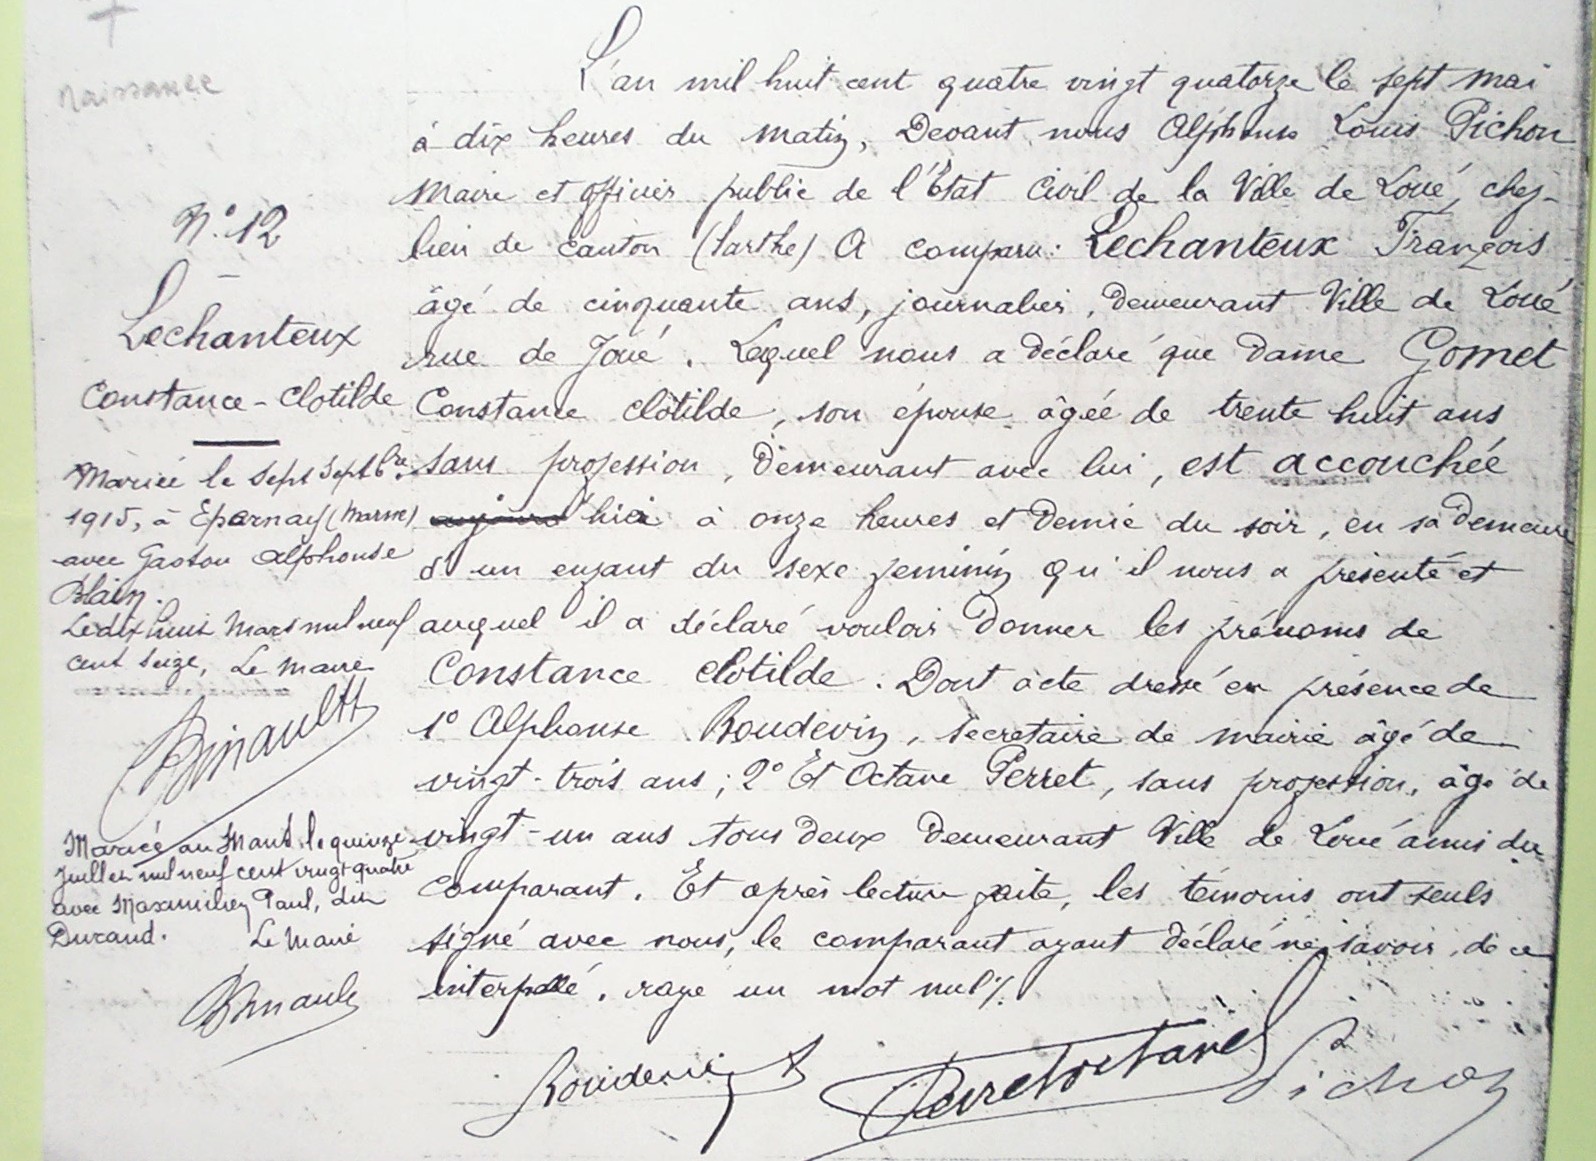 Naissance
N° 12
Lechanteux
Constance-Clotilde
Mariée le sept Septbre
1915, à Epernay (Marne)
avec Gaston Alphonse
Blain.
Le dix huit Mars mil neuf
cent seize, Le Maire
Mariée au Mans le quinze
Juillet mil neuf cent vingt quatre
avec Maximilien Paul, dit
Durand. Le Maire
L'an mil huit cent quatre vingt quatorze le sept mai
à dix heures du matin, Devant nous Alphonse Louis Pichon
Maire et officier public de l'État Civil de la Ville de Loué, chef-
lieu de canton (Sarthe) A comparu: Lechanteux François
âgé de cinquante ans, journalier, demeurant Ville de Loué
rue de Joué. Lequel nous a déclaré que dame Gomet
Constance Clotilde, son épouse âgée de trente huit ans
sans profession, demeurant avec lui, est accouchée
aujourd' hier à onze heures et demie du soir, en sa demeure
d'un enfant du sexe féminin qu'il nous a présenté et
auquel il a déclaré vouloir donner les prénoms de
Constance Clotilde. Dont acte dressé en présence de
1° Alphonse Roudevin, secrétaire de mairie âgé de
vingt-trois ans; 2° Et Octave Perret, sans profession, âgé de
vingt-un ans tous deux demeurant Ville de Loué amis du
comparant. Et après lecture faite, les témoins ont seuls
signé avec nous, le comparant ayant déclaré ne savoir, de ce
interpellé. rayé un mot nul /.
Roudevin
Perret Octave
Pichon